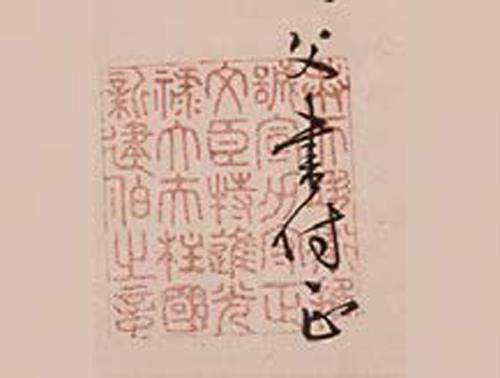 父書付正
誠宣力守正
文臣特進光
祿大夫柱國
新建伯之章